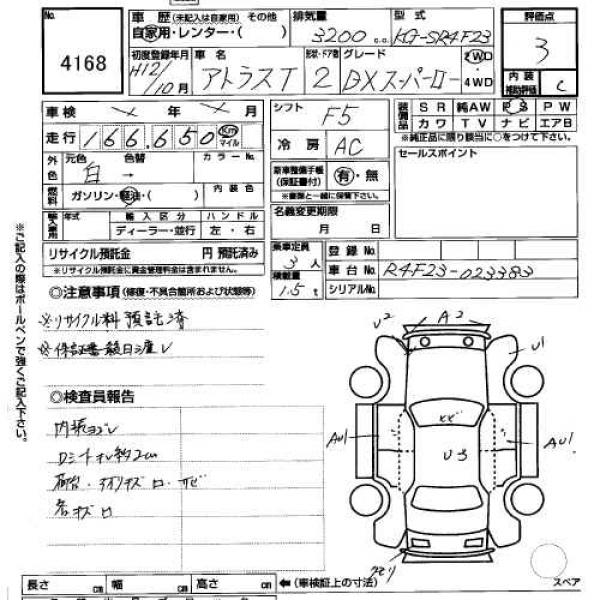 No.
4168
車歴 (未記入は自家用) その他
自家用・レンター・( )
排気量
3200 c.c.
型式
KG-SR4F23
評価点
3
初度登録年月
H12/10月
車名
アトラスT
形状・ドア数
2
グレード
DXスーパーロー
2WD・4WD
内装補助評価
C
車検 年 月
走行 166,650 Km マイル
シフト
F5
冷房
AC
装備品
SR 純AW PS PW
カワ TV ナビ エアB
※純正品に限り該当に○をつけて下さい。
外色
元色 色替
白 →
カラーNo.
燃料
ガソリン・軽油・( )
内装色
新車整備手帳(保証書付)
有・無
※書類と一緒にして下さい。
セールスポイント
輸入車用
年式
輸入区分
ディーラー・並行
ハンドル
左・右
名義変更期限
月 日
リサイクル預託金 円 預託済み
※リサイクル預託金に資金管理料金は含まれません。
乗車定員
3人
積載量
1.5t
登録No.
車台No.
R4F23-023383
シリアルNo.
◎注意事項 (修復・不具合箇所および状態等)
※リサイクル料 預託済
◎検査員報告
内張ヨゴレ
※ご記入の際はボールペンで強くご記入下さい。
A2
U2
U1
AU1
U3
AU1
スペア
長さ cm 幅 cm 高さ cm ←(車検証上の寸法)